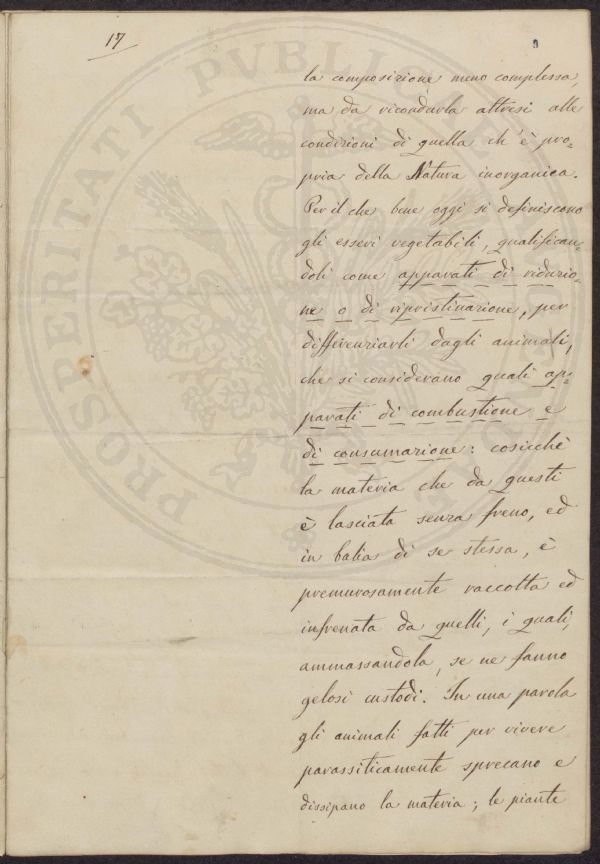 17
la composizione meno complessa,
ma da ricondurla altresì alle
condizioni di quella ch'è pro=
pria della Natura inorganica.
Per il che bene oggi si definiscono
gli esseri vegetabili, qualifican=
doli come apparati di riduzio=
ne o di ripristinazione, per
differenziarli dagli animali,
che si considerano quali ap=
parati di combustione e
di consumazione: cosicchè
la materia che da questi
è lasciata senza freno, ed
in balìa di se stessa, è
premurosamente raccolta ed
infrenata da quelli, i quali,
ammassandola, se ne fanno
gelosi custodi. In una parola
gli animali fatti per vivere
parassiticamente sprecano e
dissipano la materia; le piante
PROSPERITATI PVBLICAE